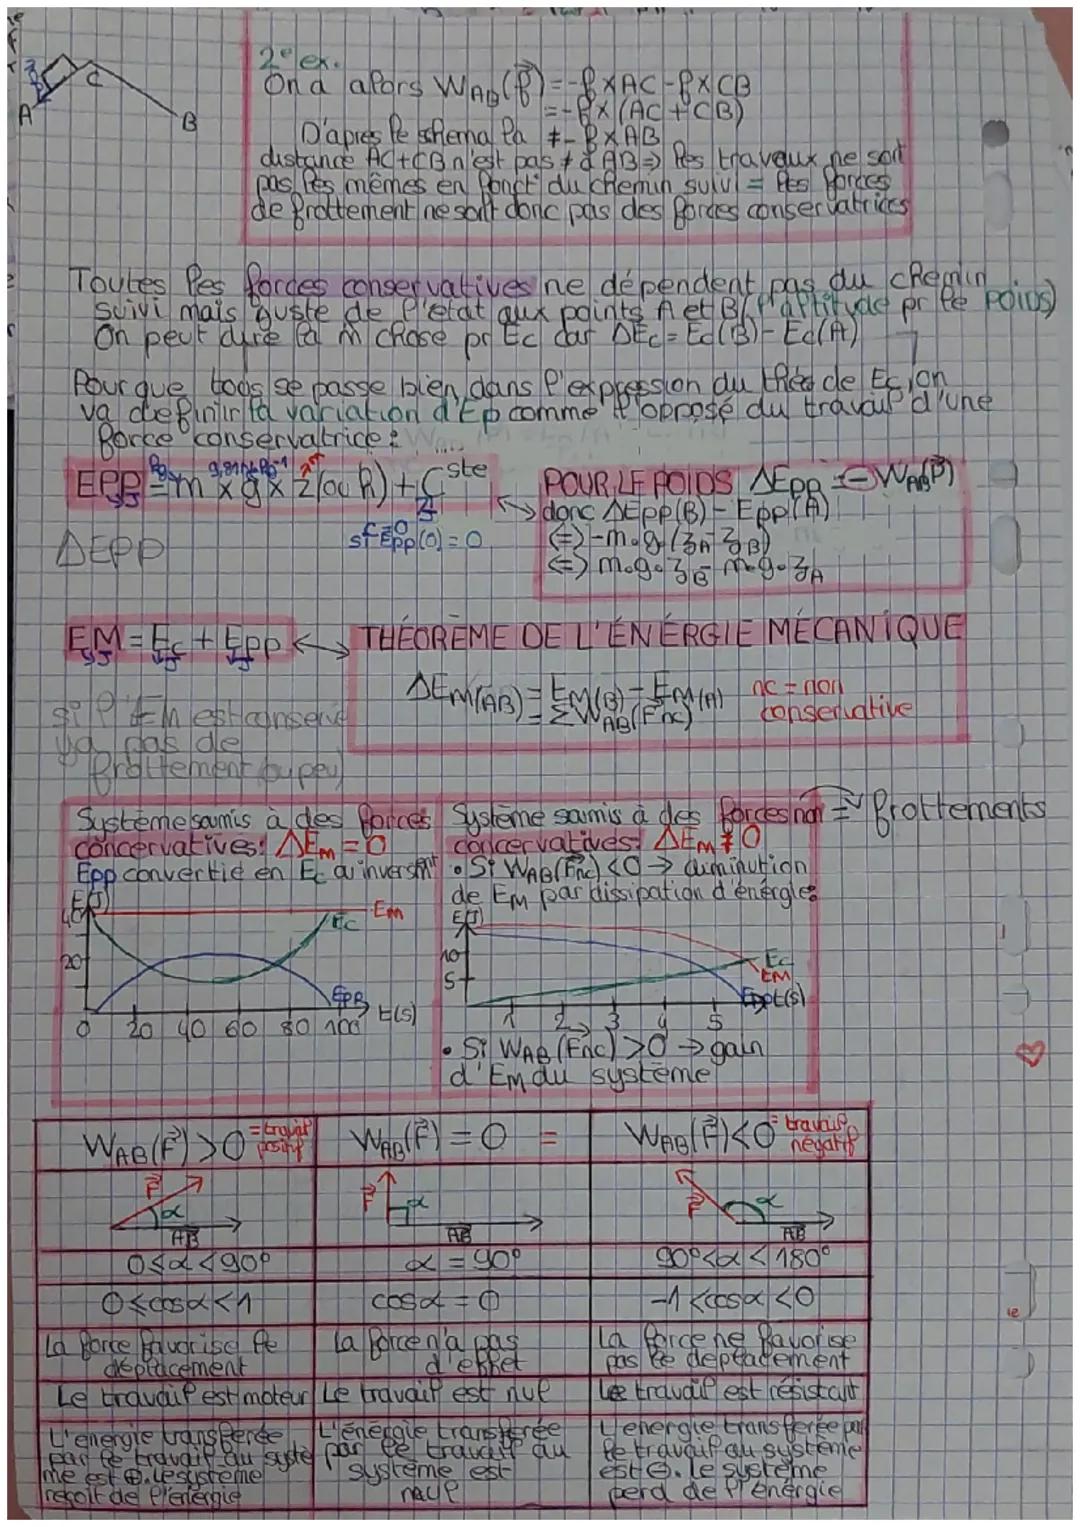 A
C
B
2e ex.
On a alors WAB(f) = -f x AC - f x CB
= -f x (AC + CB)
D'après le schema la ≠ - f x AB
distance AC+CB n'est pas ≠ à AB => les travaux ne sont
pas les mêmes en fonct° du chemin suivi = les forces
de frottement ne sont donc pas des forces conservatrices
Toutes les forces conservatives ne dépendent pas du chemin
suivi mais juste de l'état aux points A et B (l'altitude pr le poids)
On peut dire la m̂ chose pr Ec car ΔEc = Ec(B) - Ec(A)
Pour que tous se passe bien, dans l'expression du théo de Ec, on
va definir la variation d'Ep comme l'opposé du travail d'une
force conservatrice :
EPP = m x g x z (ou h) + Cste
si Epp(0) = 0
ΔEPP
POUR LE POIDS ΔEpp = - WAB(P)
donc ΔEpp(B) - Epp(A)
<=> -m.g.(zA - zB)
<=> m.g.zB - m.g.zA
EM = Ec + Epp <-> THÉORÈME DE L'ÉNERGIE MÉCANIQUE
ΔEM(AB) = EM(B) - EM(A)
= Σ WAB(Fnc)
nc = non
conservative
si l'EM est conservé
ya pas de
frottement (ou peu)
Système samis à des forces
concervatives: ΔEm = 0
Epp convertie en Ec ou inversmt
E(J)
40
20
Em
Ec
Epp
0 20 40 60 80 100 t(s)
Système samis à des forces non = frottements
concervatives: ΔEm ≠ 0
• Si WAB(Fnc) < 0 → diminution
de Em par dissipation d'énergie:
E(J)
10
5
Ec
Em
Epp t(s)
1 2 3 4 5
• Si WAB(Fnc) > 0 → gain
d'Em du système
WAB(F) > 0 = travail positif
WAB(F) = 0 =
WAB(F) < 0 = travail négatif
F α AB
F α AB
F α AB
0 ≤ α < 90°
α = 90°
90° < α < 180°
0 ≤ cos α < 1
cos α = 0
-1 < cos α < 0
La force favorise le
déplacement
La force n'a pas
d'effet
La force ne favorise
pas le deplacement
Le travail est moteur
Le travail est nul
Le travail est résistant
L'énergie transférée
par le travail au systè
me est ⊕. Le système
reçoit de l'énergie
L'énergie transférée
par le travail au
système est
nulle
L'energie transférée par
le travail au système
est ⊖. Le système
perd de l'énergie